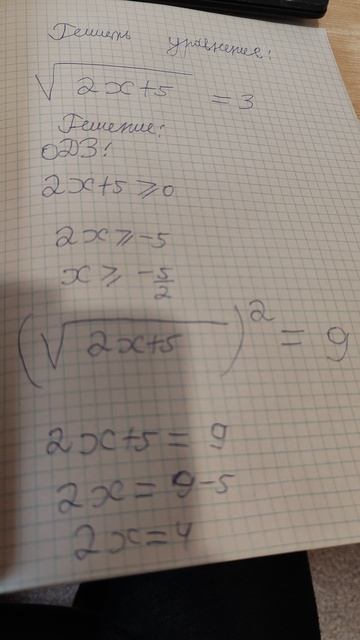 Решить уравнения:
√(2x+5) = 3
Решение:
ОДЗ:
2x+5 ≥ 0
2x ≥ -5
x ≥ -5/2
(√(2x+5))² = 9
2x+5 = 9
2x = 9-5
2x = 4